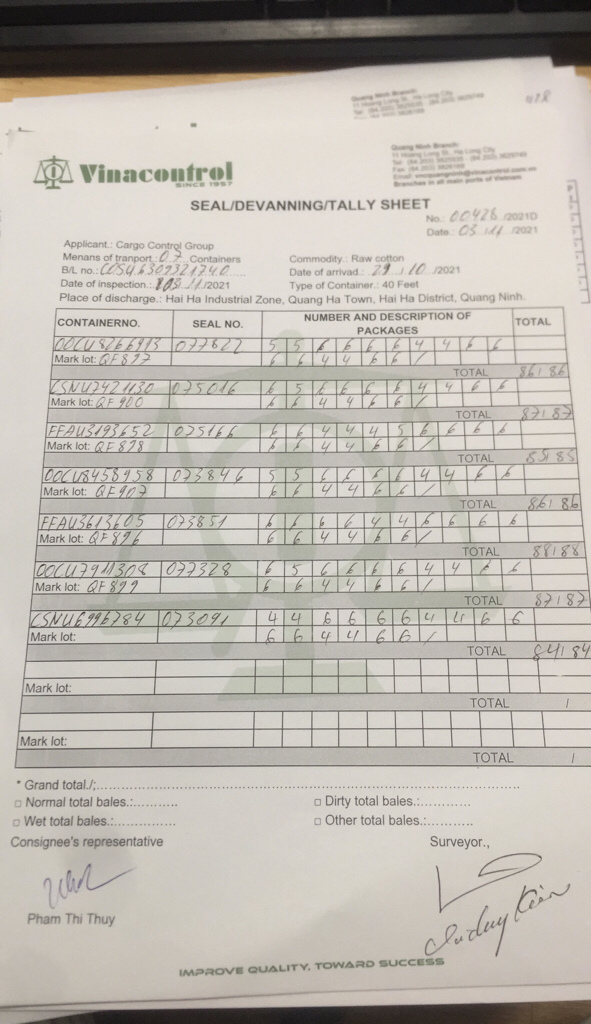 028
Quang Ninh Branch:
11 Hoang Long St., Ha Long City
Vinacontrol
SINCE 1957
Quang Ninh Branch:
11 Hoang Long St., Ha Long City
Branches in all main ports of Vietnam
SEAL/DEVANNING/TALLY SHEET
No.: 00428 /2021D
Date: 03.11 /2021
Applicant.: Cargo Control Group
Menans of tranport.: 07 Containers
Commodity.: Raw cotton
B/L no.: COSU6309321740
Date of arrivad.: 29 / 10 /2021
Date of inspection.: 03/11/2021
Type of Container.: 40 Feet
Place of discharge.: Hai Ha Industrial Zone, Quang Ha Town, Hai Ha District, Quang Ninh.
CONTAINERNO. SEAL NO. NUMBER AND DESCRIPTION OF PACKAGES TOTAL
OOCU8266913 077822 5 5 6 6 6 6 4 4 6 6
Mark lot: QF897 6 6 4 4 6 6 /
TOTAL 86/86
CSNU7421130 075016 6 5 6 6 6 6 4 4 6 6
Mark lot: QF900 6 6 4 4 6 6 /
TOTAL 87/87
FFAU3193652 075166 6 6 4 4 4 5 6 6 6 6
Mark lot: QF898 6 6 4 4 6 6 /
TOTAL 85/85
OOCU8458958 073846 5 5 6 6 6 6 4 4 6 6
Mark lot: QF907 6 6 4 4 6 6 /
TOTAL 86/86
FFAU3613605 073851 6 6 6 6 4 4 6 6 6 6
Mark lot: QF896 6 6 4 4 6 6 /
TOTAL 88/88
OOCU7911308 077328 6 5 6 6 6 6 4 4 6 6
Mark lot: QF899 6 6 4 4 6 6 /
TOTAL 87/87
CSNU6996784 073091 4 4 6 6 6 6 4 4 6 6
Mark lot: 6 6 4 4 6 6 /
TOTAL 84/84
Mark lot:
TOTAL /
Mark lot:
TOTAL /
* Grand total./;
□ Normal total bales.:
□ Dirty total bales.:
□ Wet total bales.:
□ Other total bales.:
Consignee's representative
Surveyor.,
Pham Thi Thuy
IMPROVE QUALITY, TOWARD SUCCESS